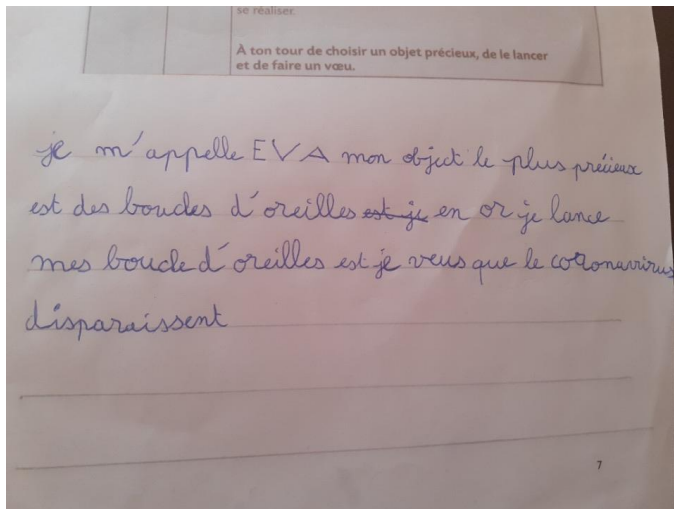 se réaliser.
À ton tour de choisir un objet précieux, de le lancer
et de faire un vœu.
je m'appelle EVA mon object le plus précieux
est des boucles d'oreilles est je en or je lance
mes boucle d'oreilles est je veus que le coronavirus
disparaissent
7